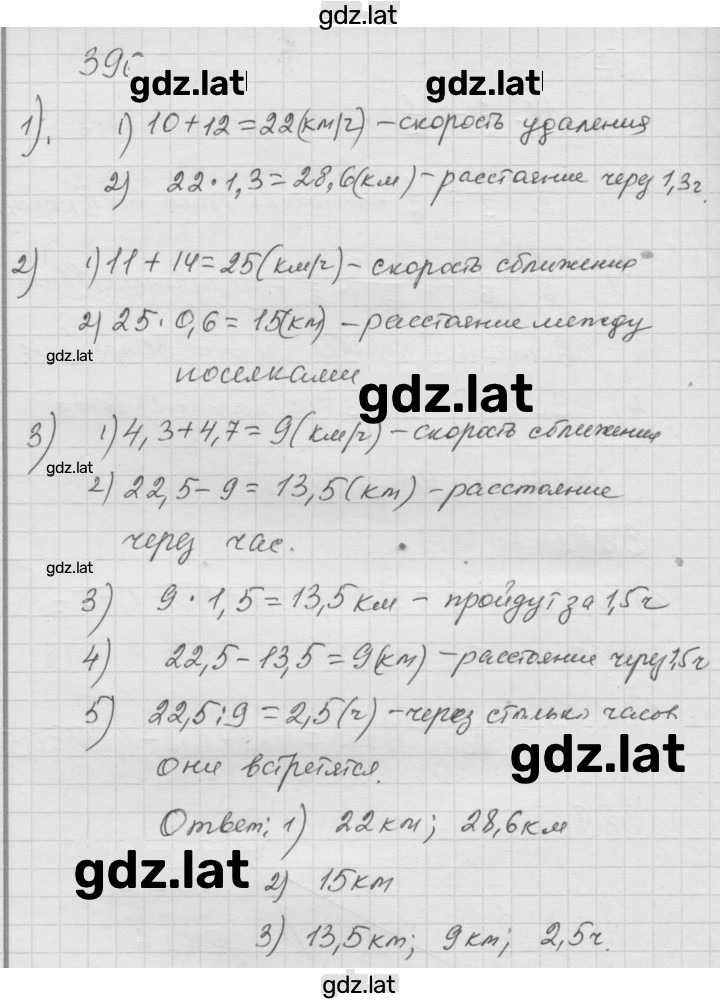 gdz.lat
39
gdz.lat gdz.lat
1). 1) 10+12=22(км/г) – скорость удаления
2) 22·1,3=28,6(км) – расстояние через 1,3г.
2) 1) 11+14=25(км/г) – скорость сближения
2) 25·0,6=15(км) – расстояние между
gdz.lat
поселками
gdz.lat
3) 1) 4,3+4,7=9(км/г) – скорость сближения
gdz.lat
2) 22,5–9=13,5(км) – расстояние
через час.
gdz.lat
3) 9·1,5=13,5км – пройдут за 1,5ч
4) 22,5–13,5=9(км) – расстояние через 1,5ч
5) 22,5:9=2,5(ч) – через столько часов
gdz.lat
они встретятся.
Ответ: 1) 22км; 28,6км
gdz.lat
2) 15км
3) 13,5км; 9км; 2,5ч.
gdz.lat